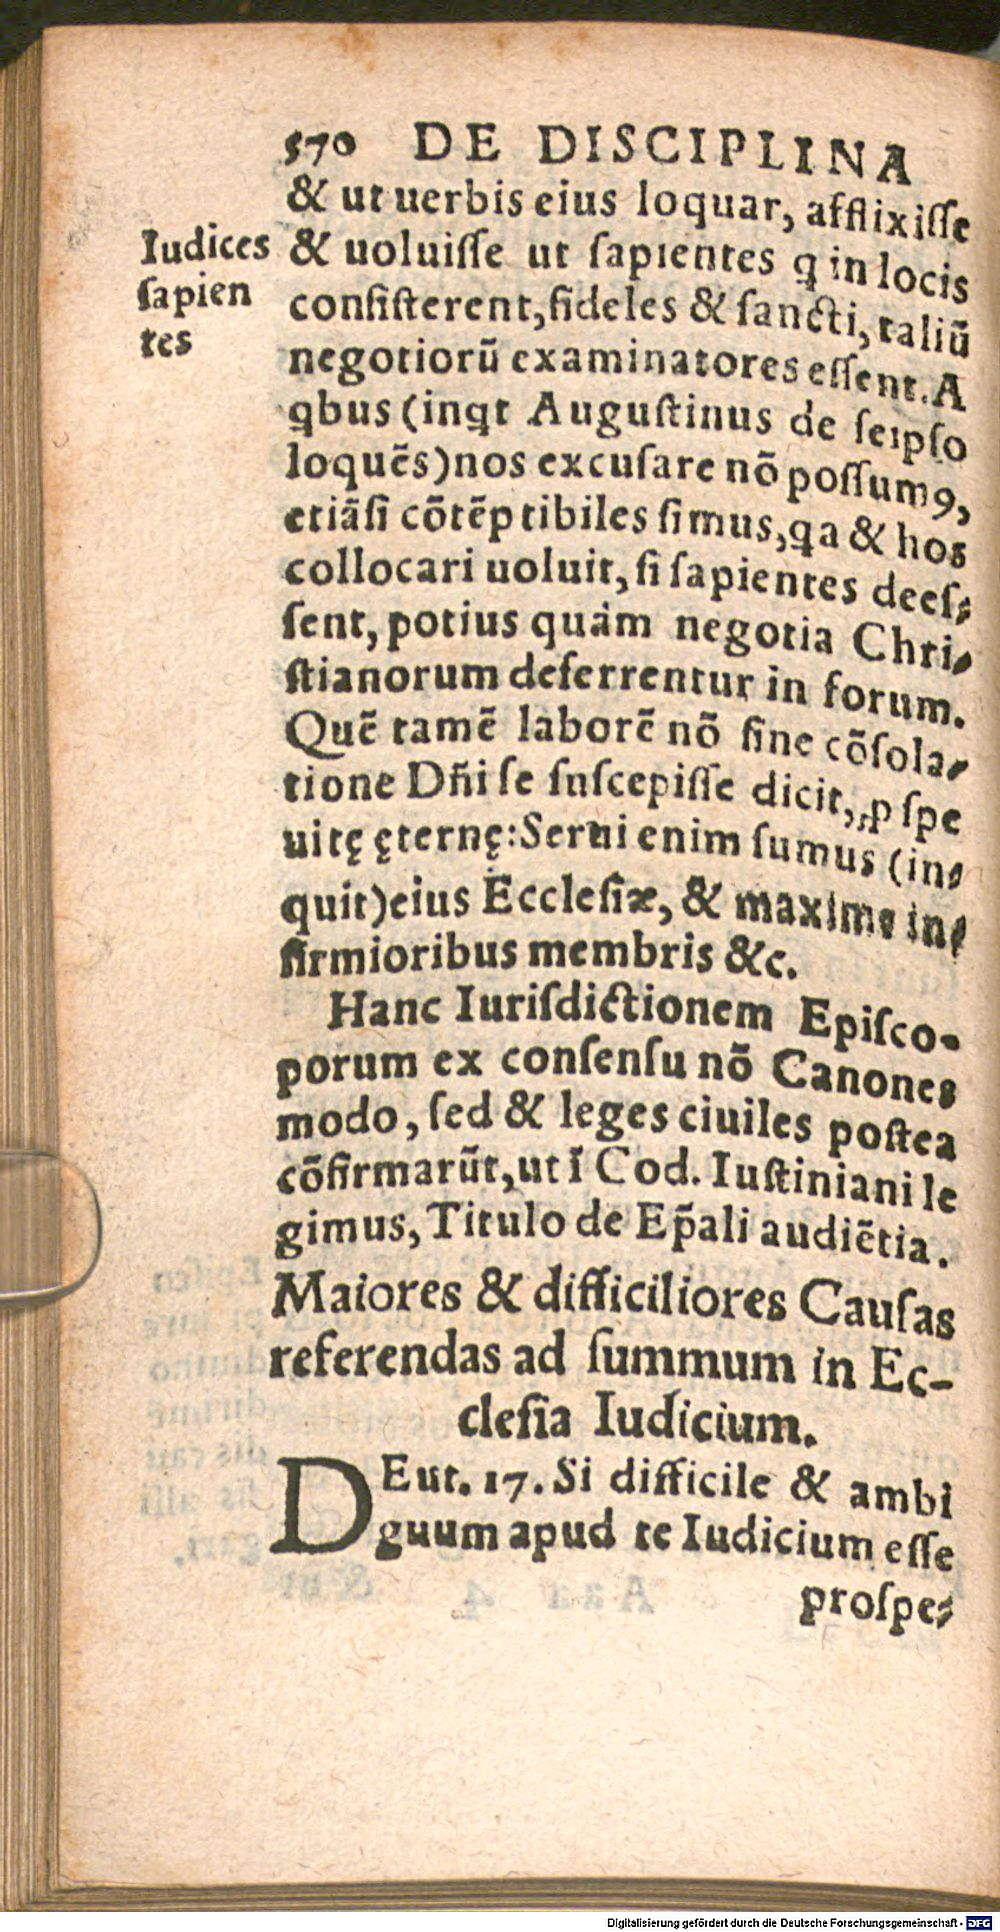 570 DE DISCIPLINA
& ut uerbis eius loquar, afflixiſſe
Iudices
ſapien
tes
& uoluiſſe ut ſapientes ꝗ in locis
conſiſterent, fideles & ſancti, taliũ
negotiorũ examinatores eſſent. A
ꝗbus (inꝗt Auguſtinus de ſeipſo
loquẽs) nos excuſare nõ poſſumꝰ,
etiãſi cõtẽptibiles ſimus, ꝗa & hos
collocari uoluit, ſi ſapientes deeſ⸗
ſent, potius quàm negotia Chri⸗
ſtianorum deferrentur in forum.
Quẽ tamẽ laborẽ nõ ſine cõſola⸗
tione Dñi ſe ſuſcepiſſe dicit, ꝓ ſpe
uitę ęternę: Serui enim ſumus (in⸗
quit) eius Eccleſiæ, & maxime in⸗
firmioribus membris &c.
Hanc Iuriſdictionem Epiſco⸗
porum ex conſenſu nõ Canones
modo, ſed & leges ciuiles poſtea
cõfirmarũt, ut ĩ Cod. Iuſtiniani le
gimus, Titulo de Ep̃ali audiẽtia.
Maiores & difficiliores Cauſas
referendas ad ſummum in Ec-
cleſia Iudicium.
DEut. 17. Si difficile & ambi
guum apud te Iudicium eſſe
proſpe⸗
Digitalisierung gefördert durch die Deutsche Forschungsgemeinschaft - DFG